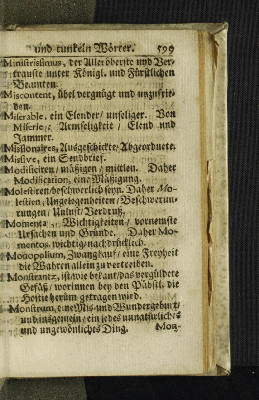 und tunkeln Wörter. 599
Ministrissimus, der Alleröberste und Ver-
trauste unter Königl. und Fürstlichen
Beamten.
Miscontent, übel vergnügt und unzufrie-
den.
Miserable, ein Elender/ unseliger. Von
Miserie/ Armseligkeit / Elend und
Jammer.
Missionaires, Ausgeschickte, Abgeordnete.
Missive, ein Sendbrief.
Modificiren/ mäßigen / mittlen. Daher
Modification, eine Mäßigung.
Molestiren/ beschwerlich seyn. Daher Mo-
lestien, Ungelegenheiten / Beschwerun-
rungen / Unlust/ Verdruß.
Momenta, Wichtigkeiten / vornemste
Ursachen und Gründe. Daher Mo-
mentos, wichtig/ nachdrücklich.
Monopolium, Zwangkauf/ eine Freyheit
die Wahren allein zu vertreiben.
Monstrantz, ist wie bekant/ das vergüldete
Gefäß/ worinnen bey den Päbstl. die
Hostie herüm getragen wird.
Monstrum, eine Mis- und Wundergeburt/
und insgemein/ ein jedes unnatürliches
und ungewönliches Ding. Mon-